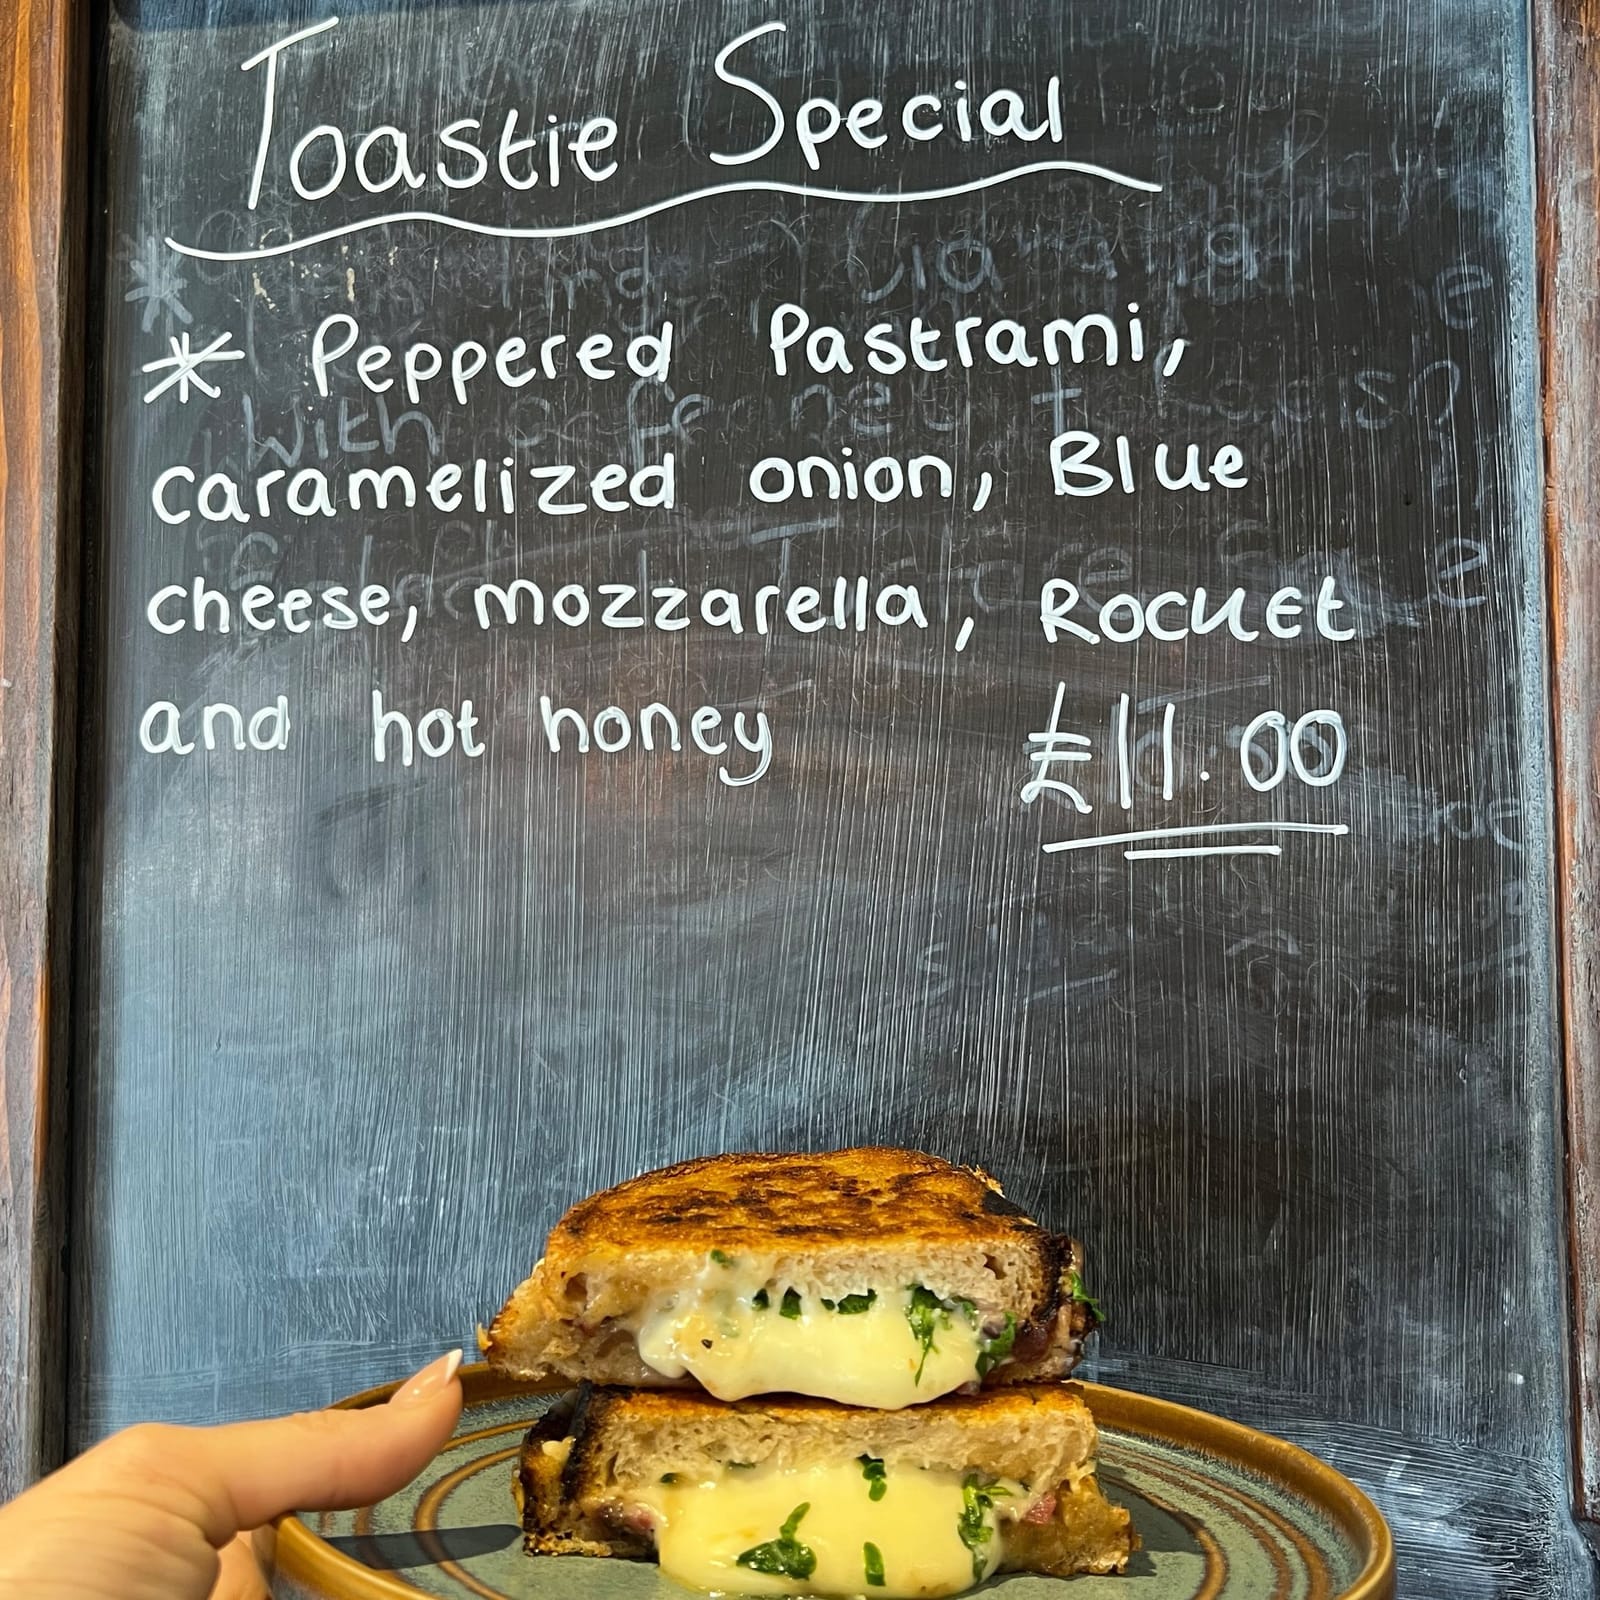 Toastie Special
* Peppered Pastrami,
caramelized onion, Blue
cheese, mozzarella, Rocket
and hot honey £11.00